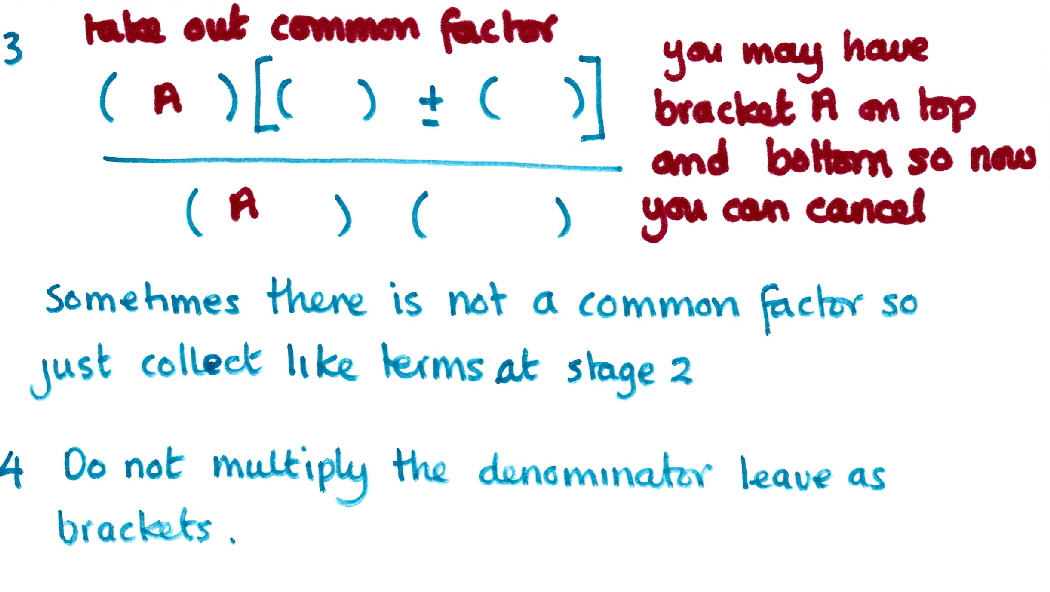 3 take out common factor
( A ) [( ) ± ( )]
( A ) ( )
you may have
bracket A on top
and bottom so now
you can cancel
Sometimes there is not a common factor so
just collect like terms at stage 2
4 Do not multiply the denominator leave as
brackets.